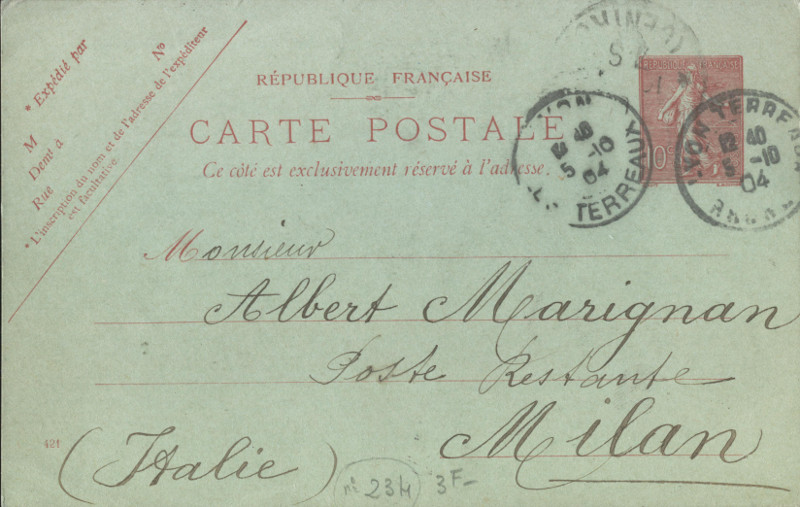 * Expédié par
N°
M
Demt à
Rue
* L'inscription du nom et de l'adresse de l'expéditeur
est facultative.
RÉPUBLIQUE FRANÇAISE
CARTE POSTALE
Ce côté est exclusivement réservé à l'adresse.
REPUBLIQUE FRANÇAISE
10
LYON
12 40
5 -10
04
TERREAUX
LYON TERREAUX
12 40
5 -10
04
RHONE
Monsieur
Albert Marignan
Poste Restante
Milan
(Italie)
421
n° 234
3F-